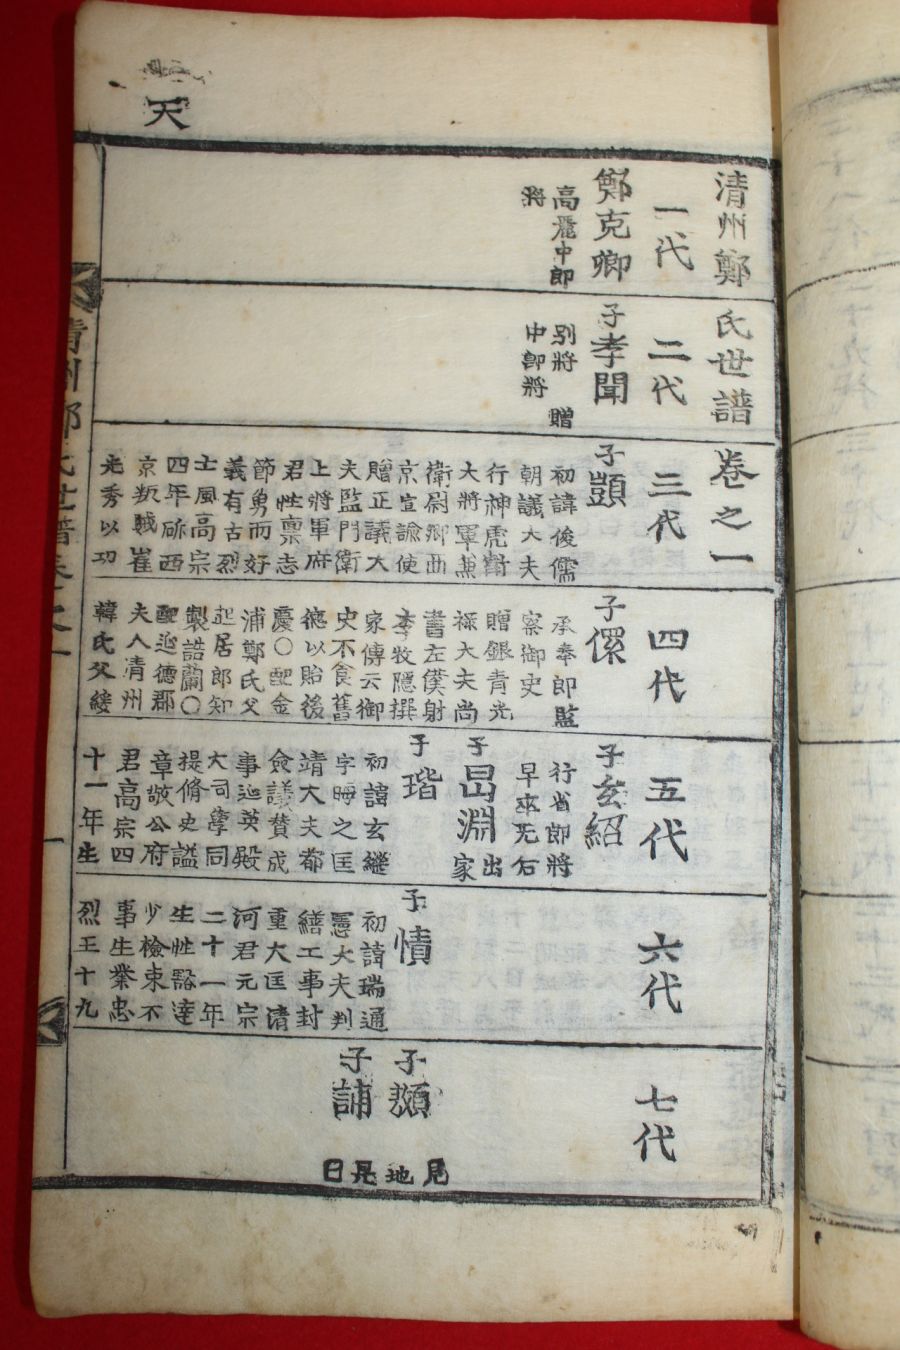 天
清州鄭氏世譜卷之一
一代
鄭克卿
高麗中郎
將
二代
子孝聞
別將 贈
中郎將
三代
子顗
初諱俊儒
朝議大夫
行神虎衛
大將軍兼
衛尉卿西
京宣諭使
贈正議大
夫監門衛
上將軍府
君性稟志
節勇而好
義有古烈
士風高宗
四年砳西
京叛賊崔
光秀以功
四代
子儇
承奉郎監
察御史
贈銀青光
祿大夫尚
書左僕射
李牧隱撰
家傳云御
史不食舊
德以貽後
慶○配金
浦鄭氏父
起居郎知
製誥蘭○
配延德郡
夫人清州
韓氏父緌
五代
子玄紹
行省郎將
早卒无后
子昷淵出
家
子瑎
初諱玄繼
字晦之匡
靖大夫都
僉議贊成
事延英殿
大司學同
提脩史謚
章敬公府
君高宗四
十一年生
六代
子㥽
初諱瑞通
憲大夫判
繕工事封
重大匡清
河君元宗
二十一年
生性豁達
少檢束不
事生業忠
烈王十九
七代
子𩔰
子誧
見地是日
清州鄭氏世譜卷之一
一